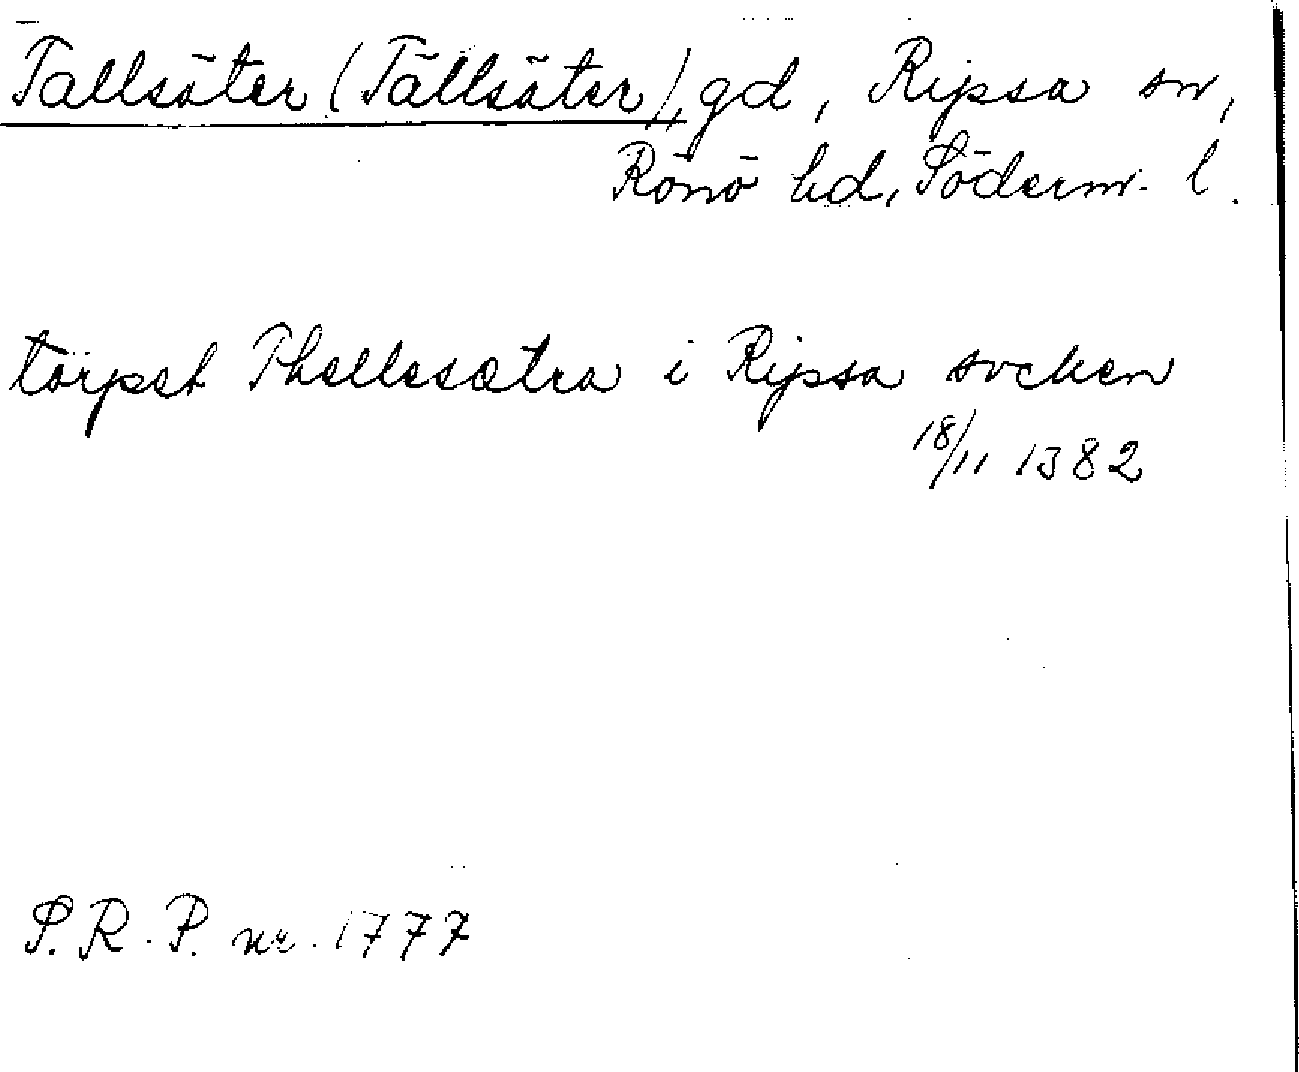 Tallsäter (Tällsäter), gd, Ripsa sn,
Rönö hd, Söderm. l.
torpet Thellesætra i Ripsa socken
18/11 1382
S.R.P. nr. 1777